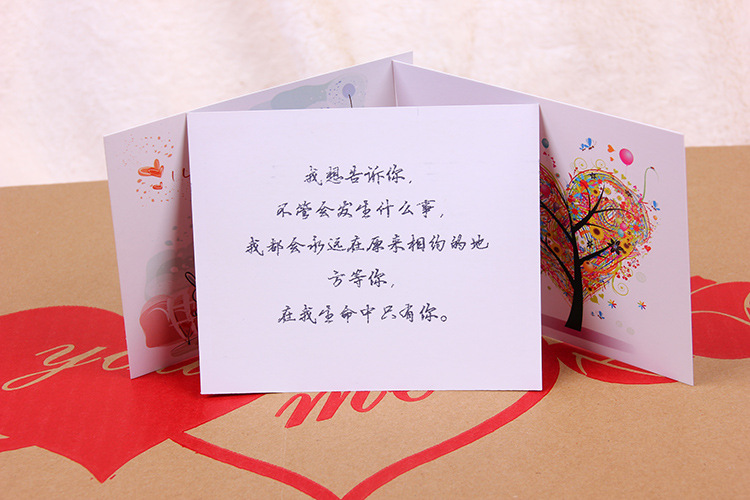 我想告诉你，
不管会发生什么事，
我都会永远在原来相约的地
方等你，
在我生命中只有你。
you
me